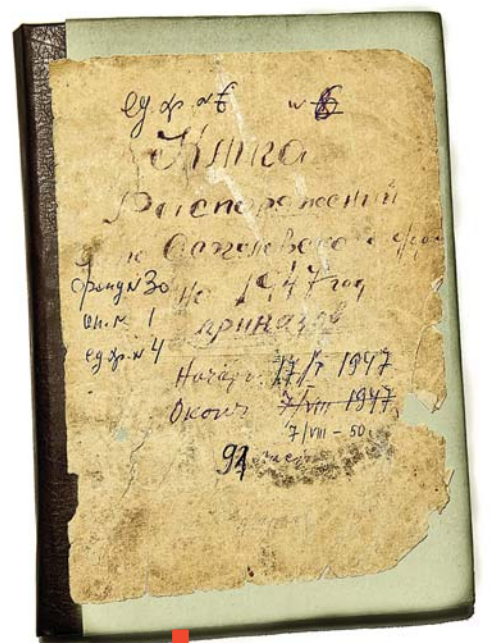 ед. хр. № 6 № 6
Книга
Распоряжений
по
Фонд № 30 на 1947 год
оп. № 1 приказов
ед. хр. № 4
Начат 17/I 1947
Оконч 7/VIII 1947
7/VIII - 50
91